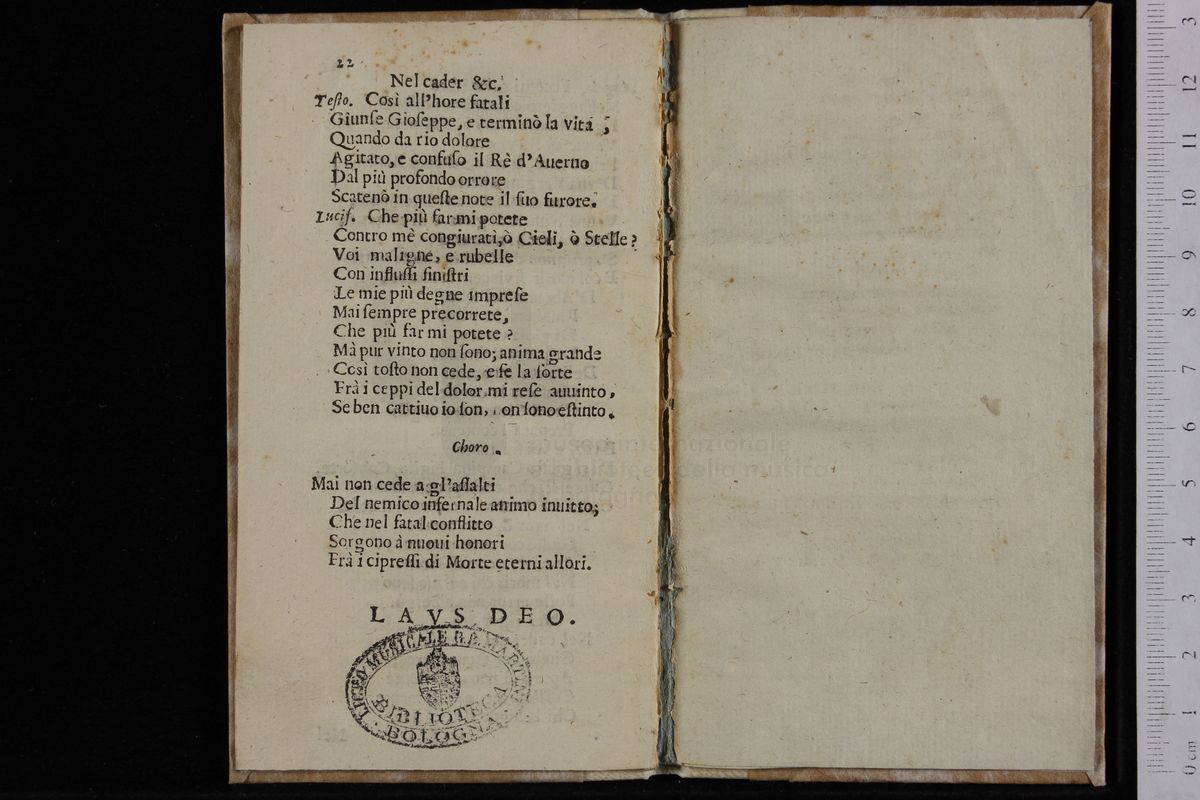 22
Nel cader &c.
Teſto. Così all'hore fatali
Giunſe Gioſeppe, e terminò la vita ;
Quando da rio dolore
Agitato, e confuſo il Rè d'Auerno
Dal più profondo orrore
Scatenò in queſte note il ſuo furore.
Lucif. Che più far mi potete
Contro mè congiurati, ò Cieli, ò Stelle ?
Voi maligne, e rubelle
Con influſſi ſiniſtri
Le mie più degne impreſe
Mai ſempre precorrete,
Che più far mi potete ?
Mà pur vinto non ſono; anima grande
Così toſto non cede, e ſe la ſorte
Frà i ceppi del dolor mi reſe auuinto,
Se ben cattiuo io ſon, on ſono eſtinto.
Choro.
Mai non cede a gl'aſſalti
Del nemico infernale animo inuitto;
Che nel fatal conflitto
Sorgono à nuoui honori
Frà i cipreſſi di Morte eterni allori.
LAVS DEO.
LICEO MUSICALE G.B. MARTINI
BIBLIOTECA
BOLOGNA
museo internazionale
e biblioteca della musica
0 cm 1 2 3 4 5 6 7 8 9 10 11 12 3